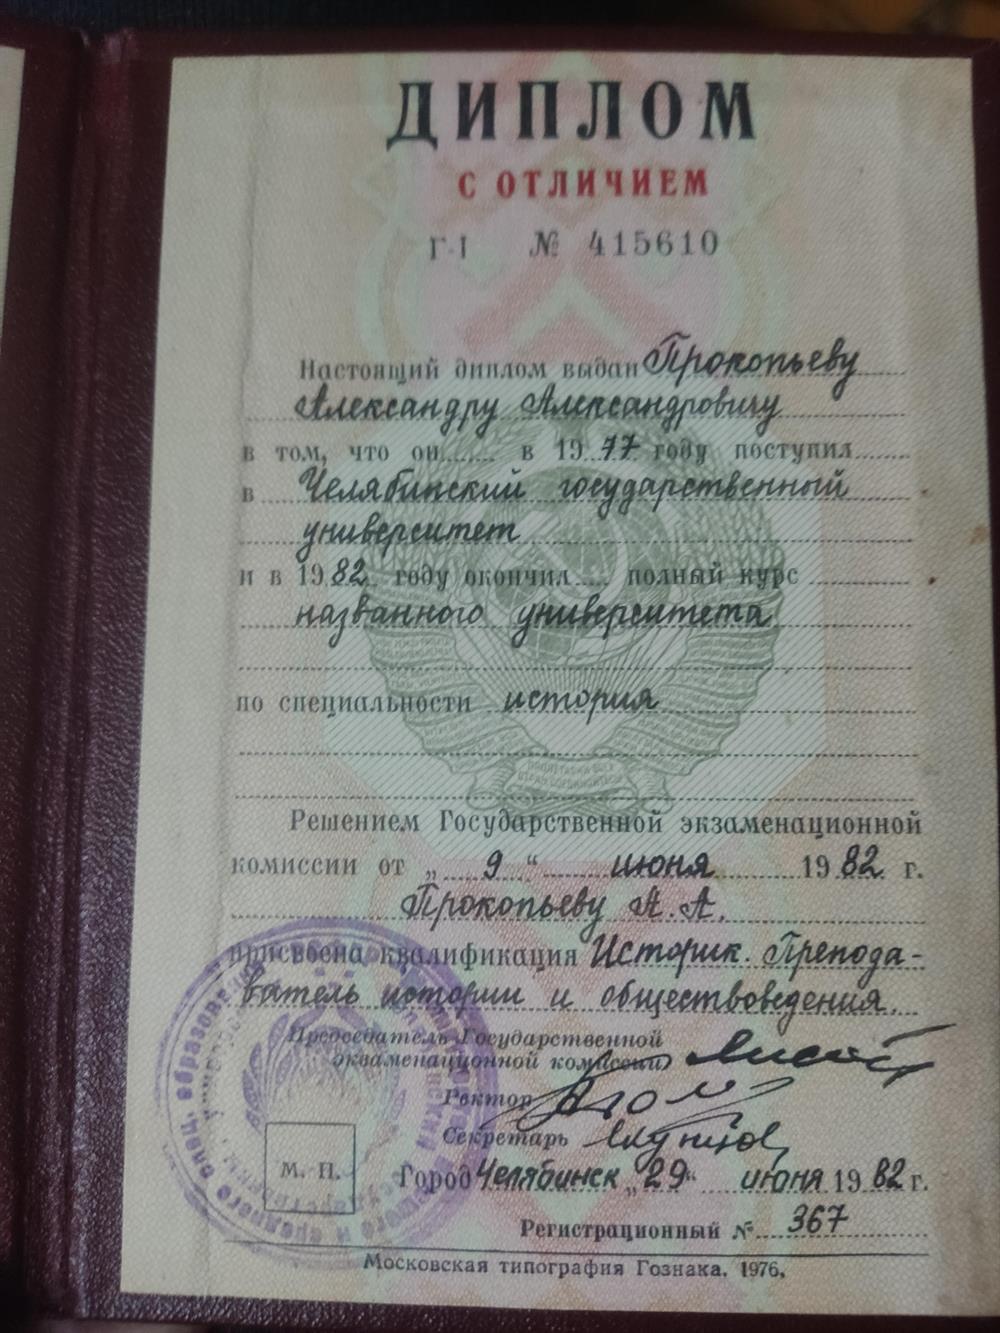 ДИПЛОМ
С ОТЛИЧИЕМ
Г-I № 415610
Настоящий диплом выдан Прокопьеву
Александру Александровичу
в том, что он в 1977 году поступил
в Челябинский государственный
университет
и в 1982 году окончил полный курс
названного университета
по специальности история
Решением Государственной экзаменационной
комиссии от „ 9 “ июня 1982 г.
Прокопьеву А. А.
присвоена квалификация Историк. Препода-
ватель истории и обществоведения.
Председатель Государственной
экзаменационной комиссии
Ректор
Секретарь
М. П.
Город Челябинск „29“ июня 1982 г.
Регистрационный № 367
Московская типография Гознака. 1976.